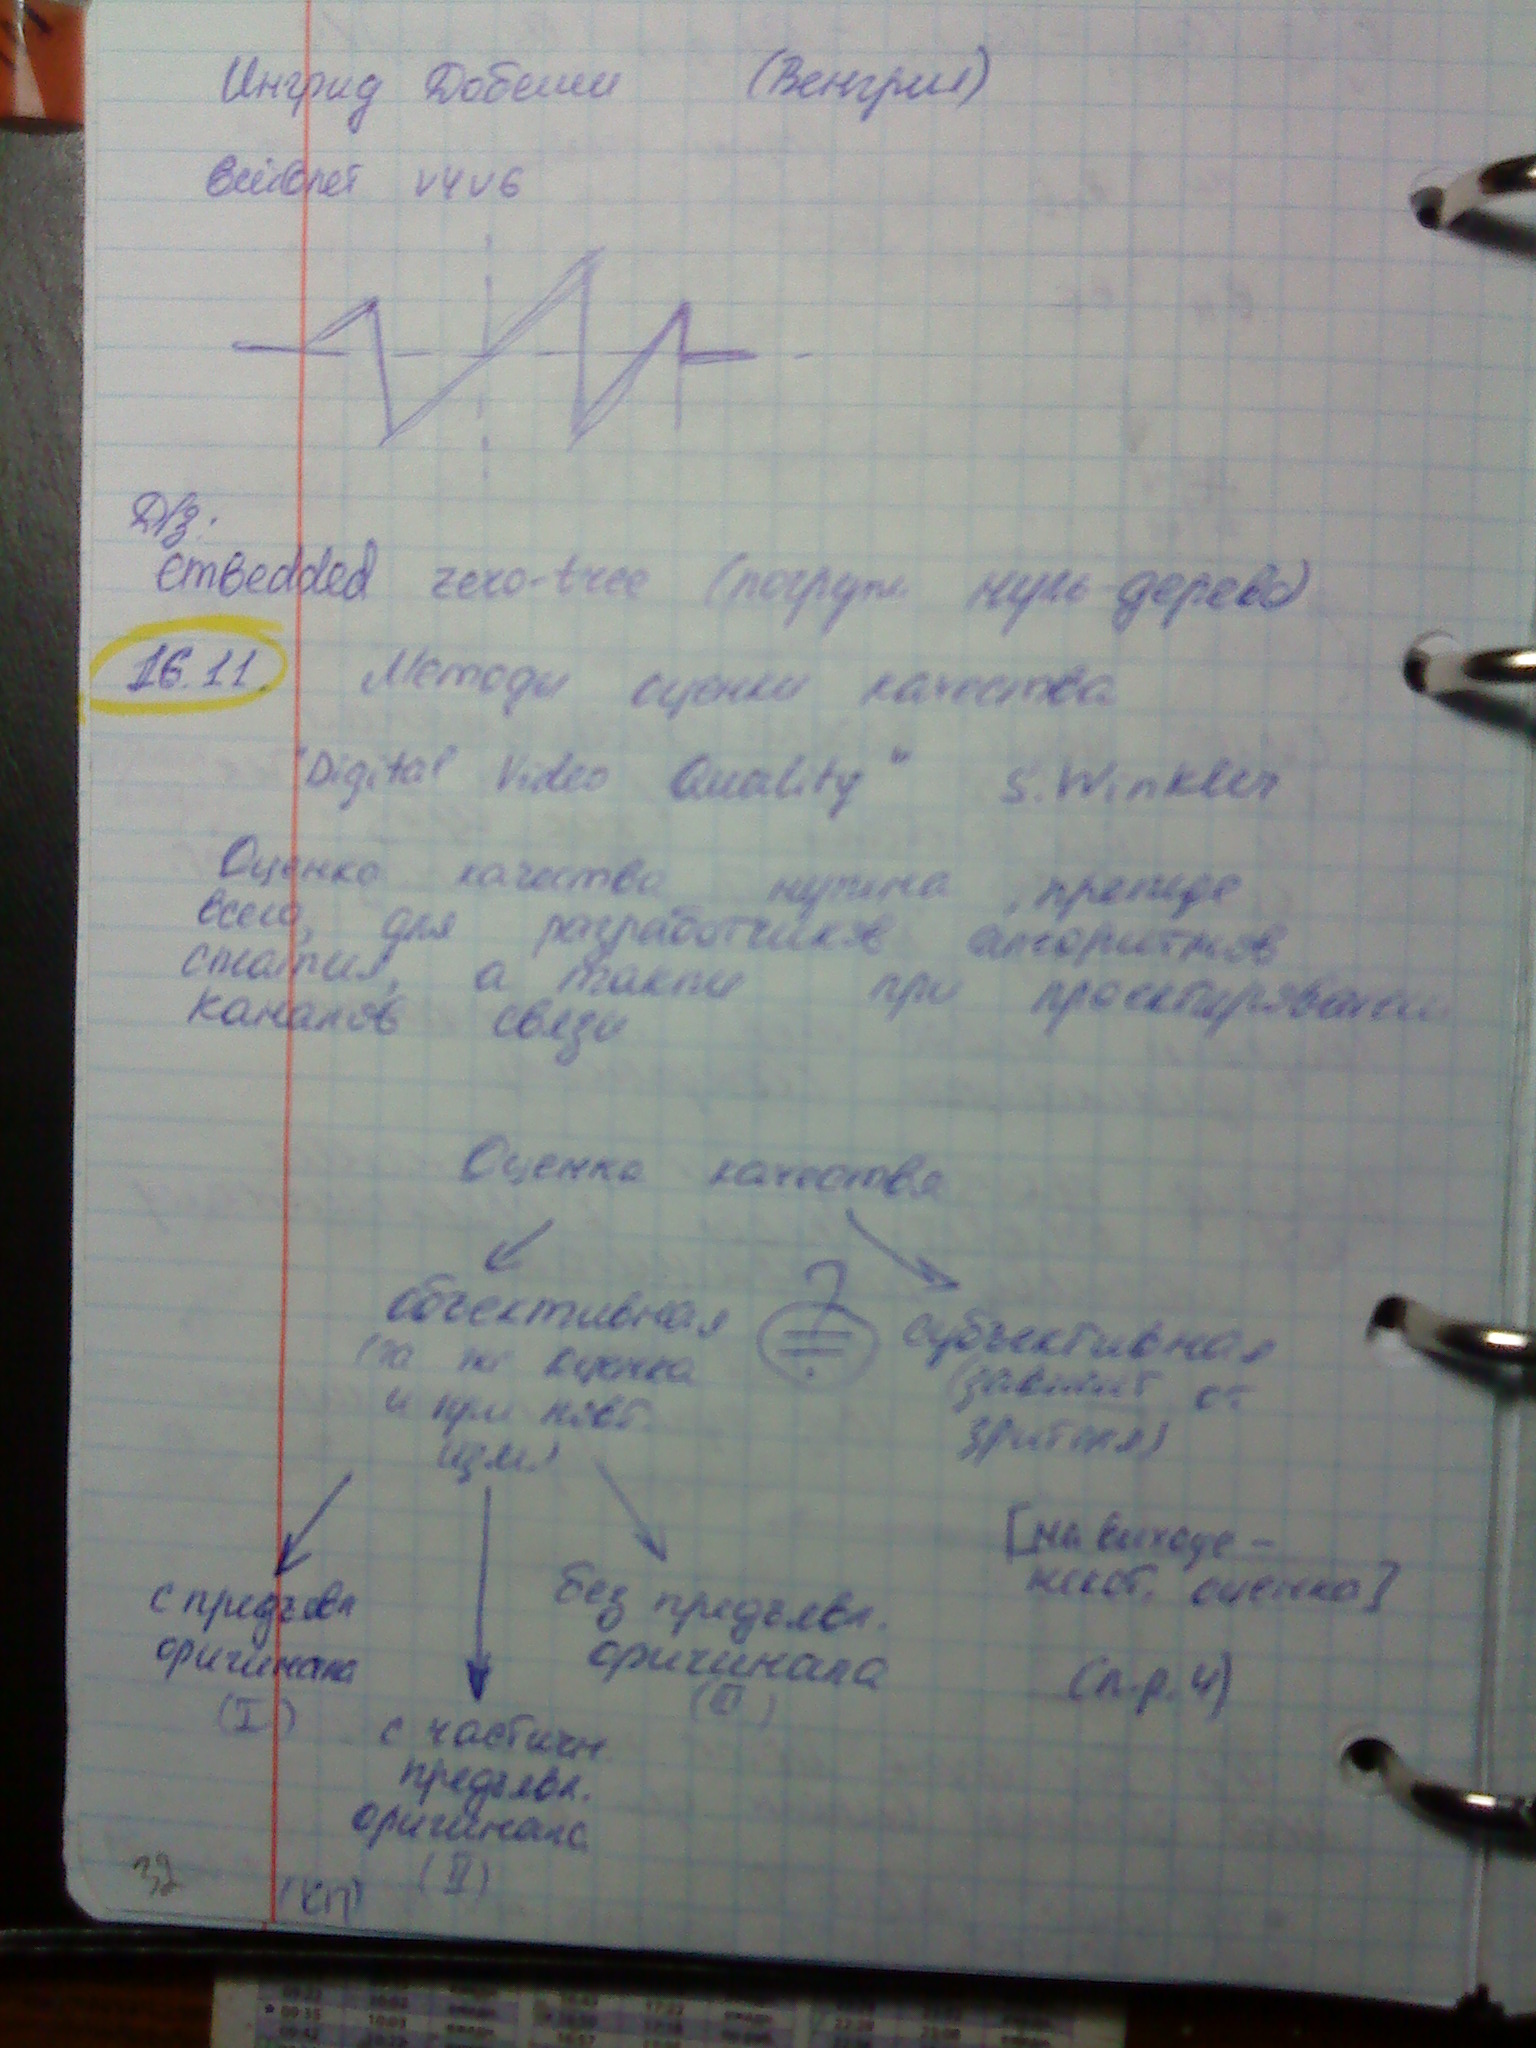 Ингрид Добеши (Венгрия)
Вейвлет V4V6
Д/з:
embedded zero-tree (погруж. нуль-дерево)
16.11. Методы оценки качества
"Digital Video Quality" S. Winkler
Оценка качества нужна, прежде
всего, для разработчиков алгоритмов
сжатия, а также при проектировании
каналов связи
Оценка качества
объективная
(та же оценка
и при повт.
изм.)
?
субъективная
(зависит от
зрителя)
[на выходе -
некот. оценка]
(л.р. 4)
с предъявл
оригинала
(I)
с частичн
предъявл.
оригинала
(II)
без предъявл.
оригинала
(III)
32
(КП)
09:35
09:42
10:03
17:22